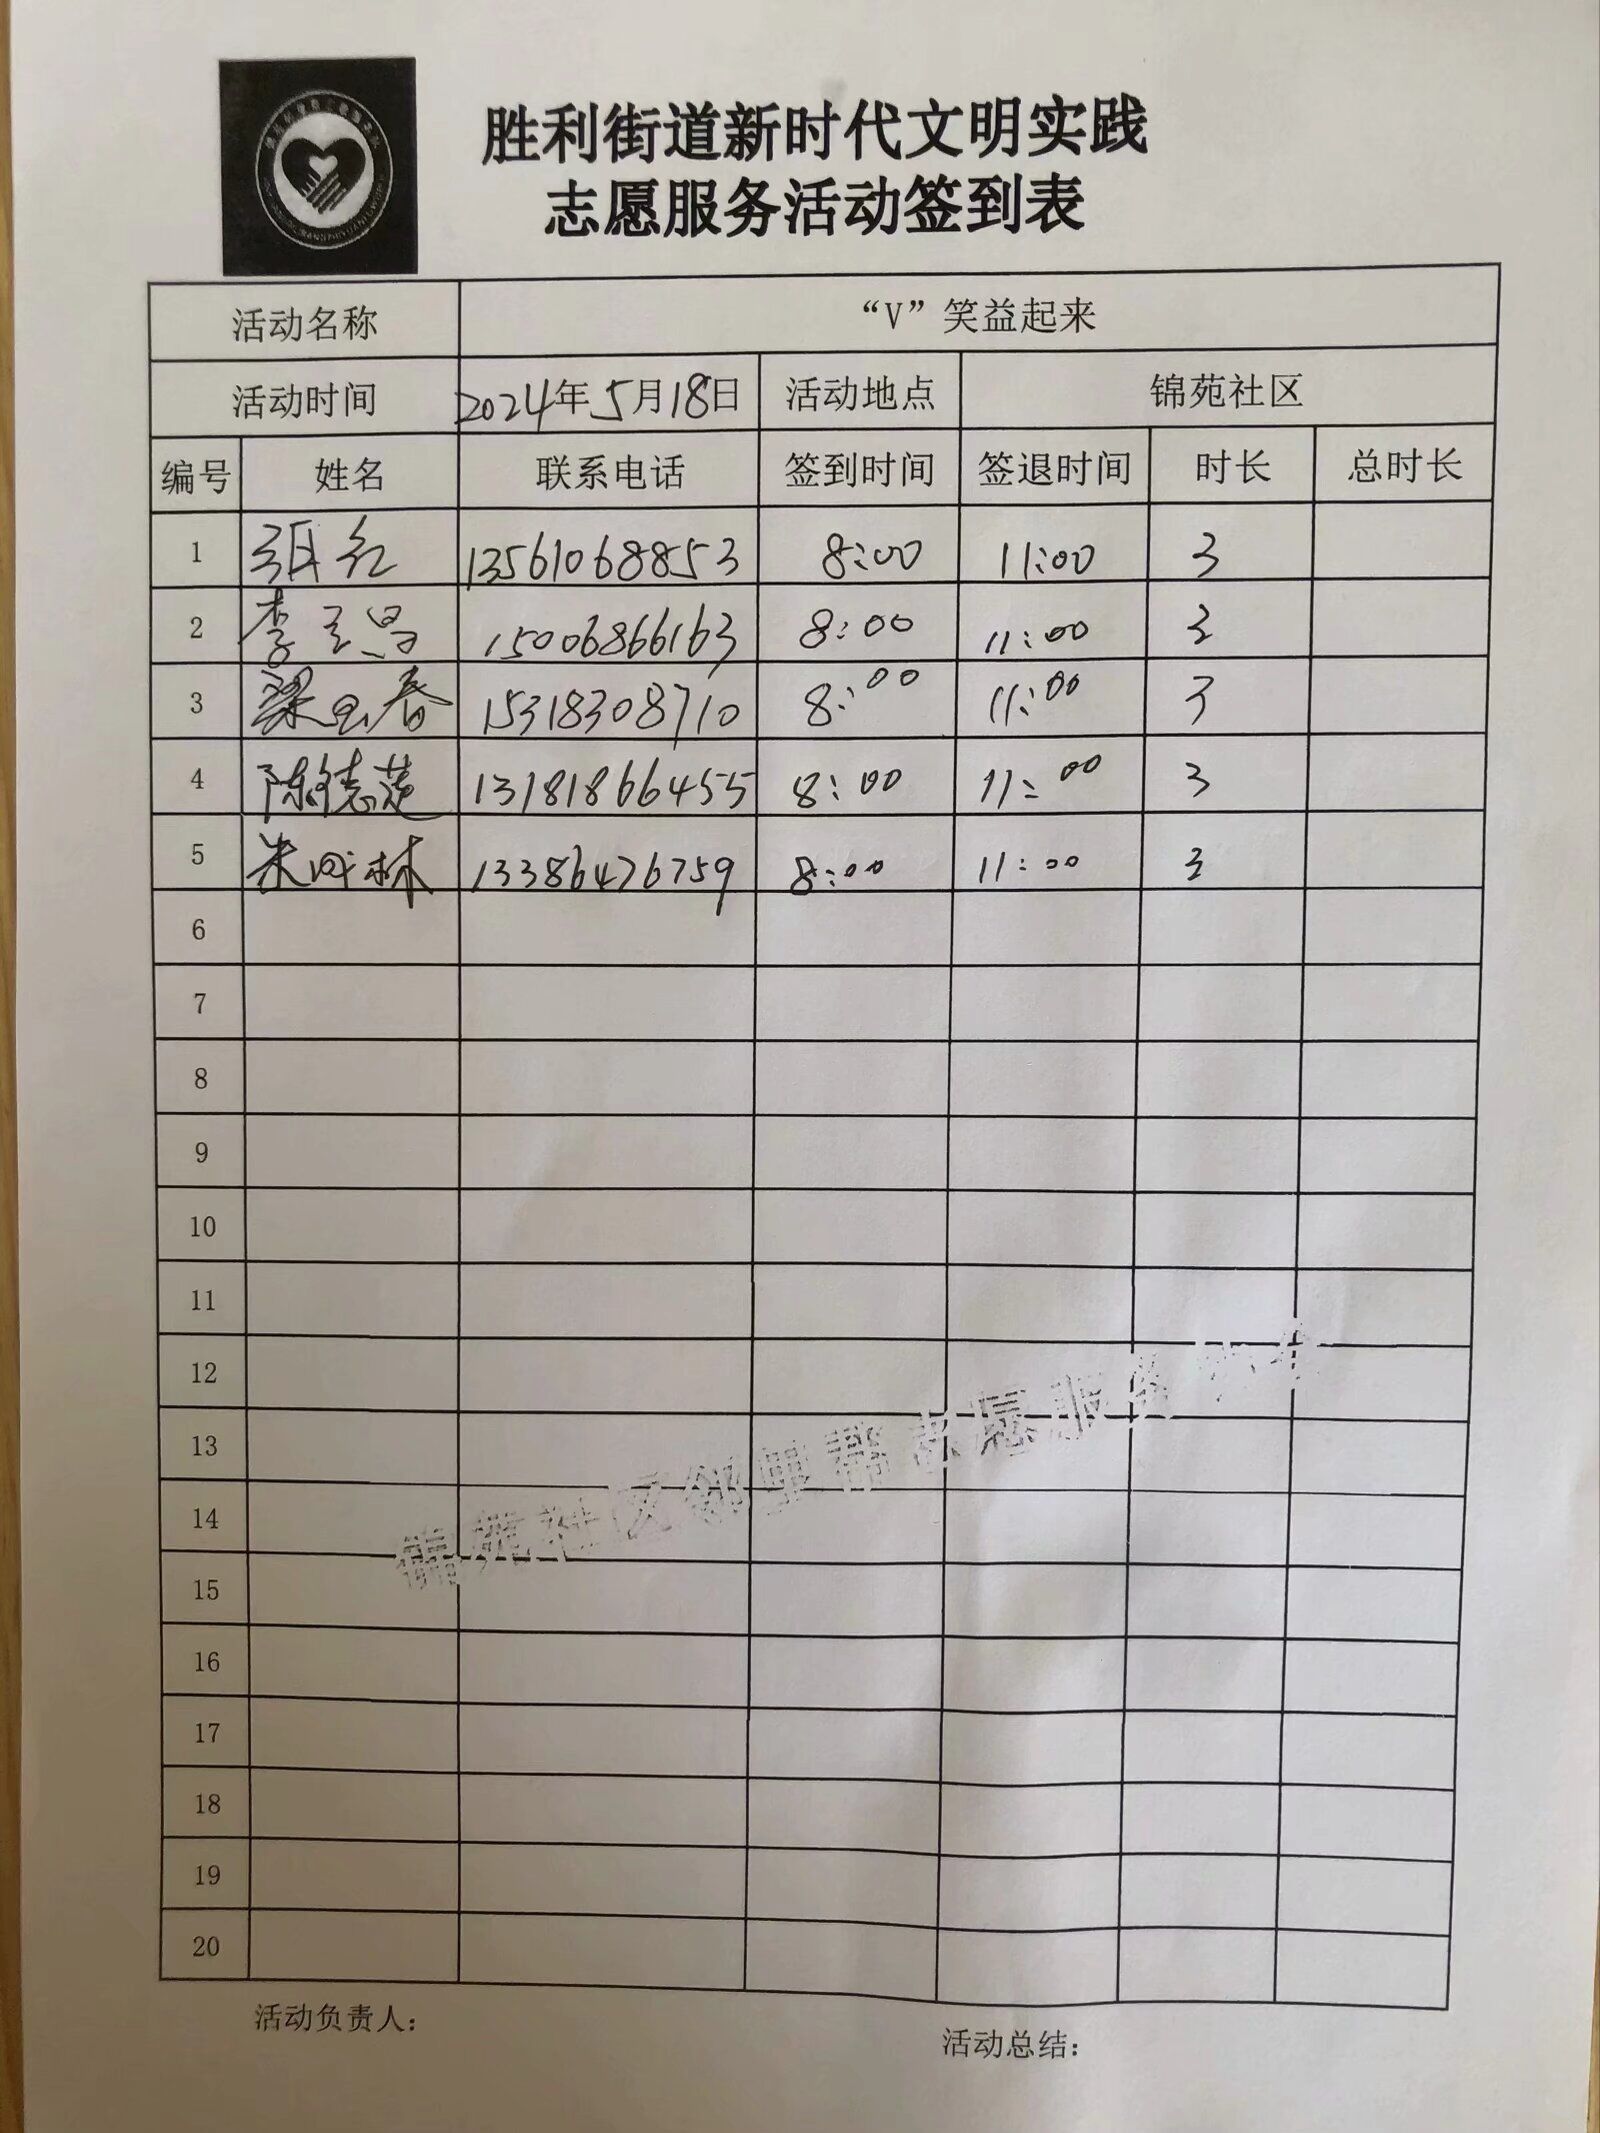 胜利街道新时代文明实践
志愿服务活动签到表
活动名称 “V”笑益起来
活动时间 2024年5月18日 活动地点 锦苑社区
编号 姓名 联系电话 签到时间 签退时间 时长 总时长
1 张红 13561068853 8:00 11:00 3
2 李玉昌 15006866163 8:00 11:00 3
3 梁玉春 15318308710 8:00 11:00 3
4 陈德莲 13181866455 8:00 11:00 3
5 朱成林 13386476759 8:00 11:00 3
6
7
8
9
10
11
12
13
14
15
16
17
18
19
20
锦苑社区邻里帮志愿服务
活动负责人：
活动总结：